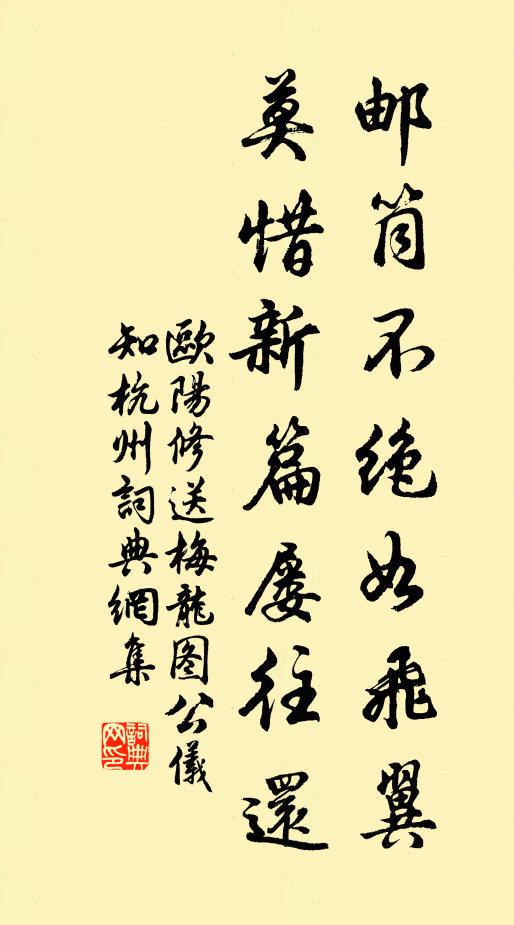 邮筒不绝如飛翼
莫惜新篇屡往還
歐陽修送梅龍图公儀
知杭州詞典網集
詞典网印